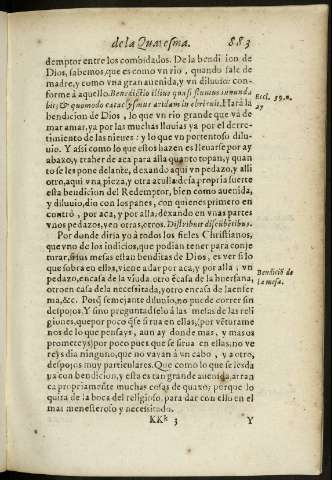 de la Quaresma. 883
demptor entre los combidados. De la bendi ion de
Dios, sabemos, que es como vn rio, quando sale de
madre, y como vna gran auenida, y vn diluuio: con-
forme â aquello. Benedictio illius quasi fluuius inunda
bit; & quomodo cataclysmus aridam inebriauit. Hara la
bendicion de Dios, lo que vn rio grande que va de
mar a mar, ya por las muchas lluuias ya por el derre-
timiento de las nieues: y lo que vn portentoso dilu-
uio. Y assi como lo que estos hazen es lleuarse por ay
abaxo, y traher de aca para alla quanto topan, y quan
to se les pone delante, dexando aqui vn pedaço, y alli
otro, aqui vna pieza, y otra aculla: desa propria suerte
esta bendicion del Redemptor, bien como auenida,
y diluuio, dio con los panes, con quienes primero en
contró, por aca, y por alla, dexando en vnas partes
vnos pedazos, y en otras, otros. Distribuit discũbẽtibus.
Por donde diria yo à todos los fieles Christianos,
que vno de los indicios, que podian tener para conje
mrar, si sus mesas estan benditas de Dios, es ver si lo
que sobra en ellas, viene a dar por aca, y por alla, vn
pedazo, en casa de la viuda, otro ẽ casa de la huerfana,
otro en casa de la necessitada, y otro en casa de la enfer
ma, &c. Porq̃ semejante diluuio, no puede correr sin
despojos. Y sino preguntadselo à las mesas de las reli
giones, que por poco q̃ se sirua en ellas, (por vẽturame
nos de lo que pensays, aun ay donde mas, y mas os
prometeys) por poco pues que se sirua en ellas, no ve
reys dia ninguno, que no vayan à vn cabo, y a otro,
despojos muy particulares. Que como lo que se les da
va con bendicion, y esta es tan grande auenida, arran
ca propriamente muchas cosas de quaxo; porque lo
quita de la boca del religioso, para dar con ello en el
mas menesteroso y necesitado.
KKk 3 Y
Eccl. 39. n.
27
Bendiciõ de
la mesa.